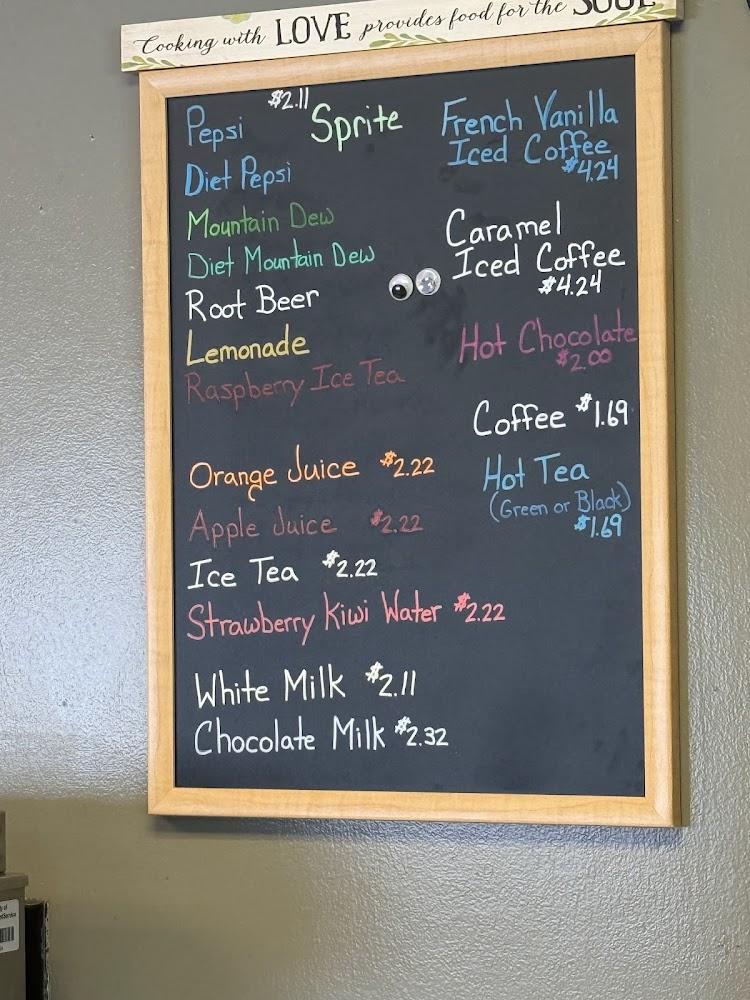 Cooking with LOVE provides food for the SOUL
$2.11
Pepsi
Sprite
Diet Pepsi
Mountain Dew
Diet Mountain Dew
Root Beer
Lemonade
Raspberry Ice Tea
Orange Juice $2.22
Apple Juice $2.22
Ice Tea $2.22
Strawberry Kiwi Water $2.22
White Milk $2.11
Chocolate Milk $2.32
French Vanilla
Iced Coffee
$4.24
Caramel
Iced Coffee
$4.24
Hot Chocolate
$2.00
Coffee $1.69
Hot Tea
(Green or Black)
$1.69